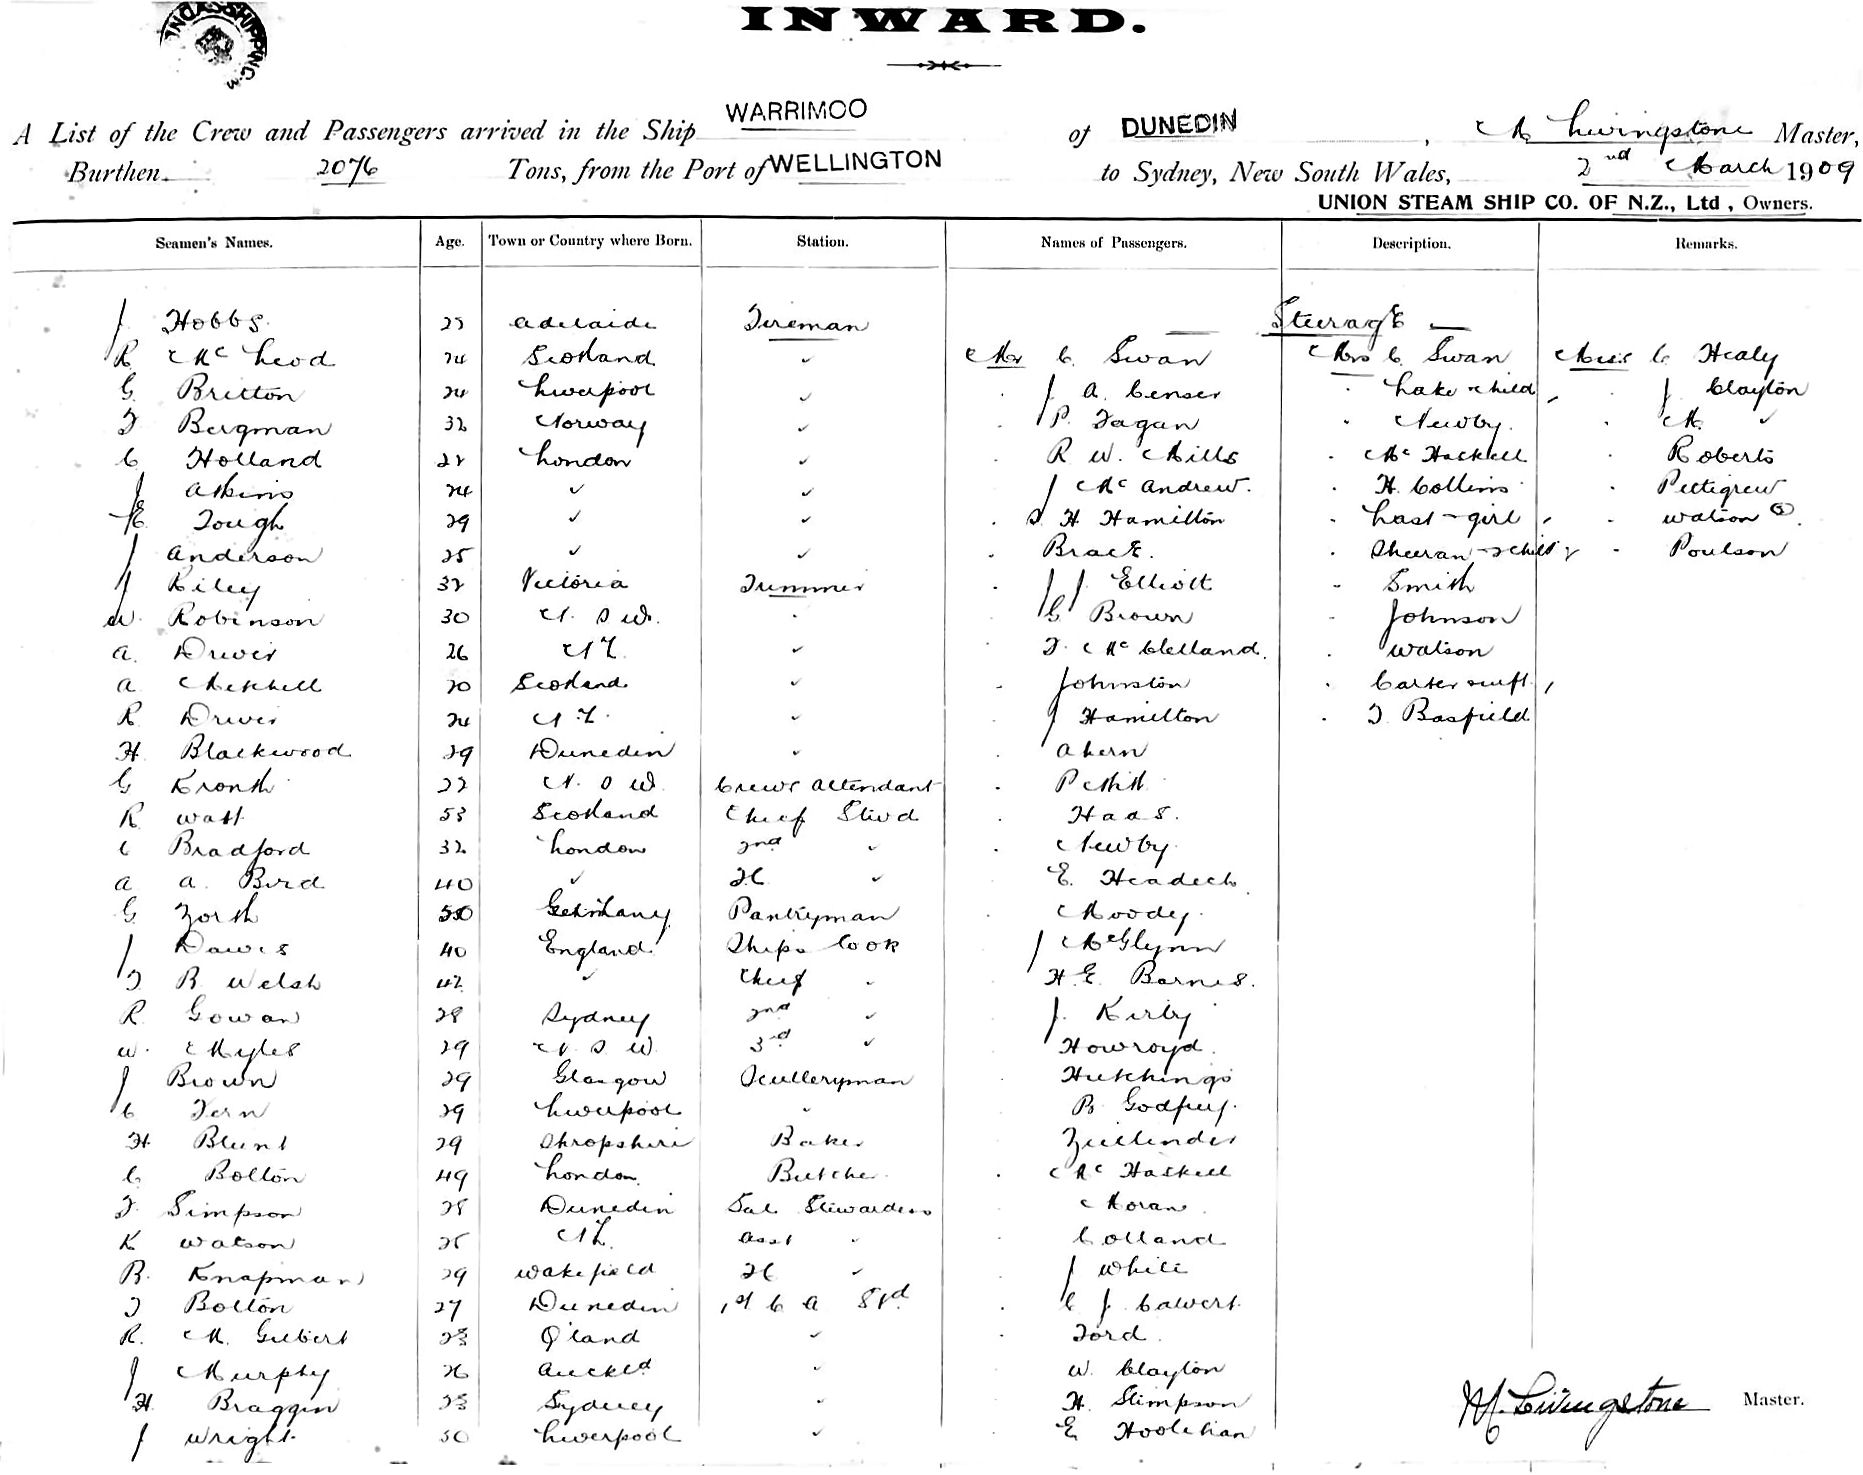 INWARD.
A List of the Crew and Passengers arrived in the Ship WARRIMOO of DUNEDIN, M Livingstone Master,
Burthen 2076 Tons, from the Port of WELLINGTON to Sydney, New South Wales, 2nd March 1909
UNION STEAM SHIP CO. OF N.Z., Ltd, Owners.
Seamen's Names. Age. Town or Country where Born. Station. Names of Passengers. Description. Remarks.
J Hobbs. Adelaide Fireman Steerage
R McLeod 24 Scotland ✓ Mr C. Swan Mrs C Swan Miss C Healy
G Britton 24 Liverpool ✓ J A. Censer Lake & child J Clayton
F Bergman 32 Norway ✓ P. Fagan Newby. M. ✓
C Holland London ✓ R W. Mills McHaskell Roberts
J Atkins 24 ✓ ✓ J McAndrew. H. Collins Pettigrew
E. Tough 29 ✓ ✓ H. Hamilton Last & girl Watson
J Anderson 25 ✓ ✓ Brace. Sheeran & child Poulson
J Riley 32 Victoria Trimmer J J. Elliott Smith
W. Robinson 30 N. S W. G Brown Johnson
A. Driver 26 NZ. ✓ F. McClelland. Watson
A Mitchell 20 Scotland ✓ Johnston Carter
R Driver 24 N Z. ✓ J Hamilton T. Basfield
H. Blackwood 29 Dunedin ✓ Ahern
G Kronk 22 N. S W. Crews Attendant
R Watt 53 Scotland Chief Stwd Haas.
C Bradford 32 London 2nd ✓ Newby.
A A. Bird 40 ✓ ✓ E. Headech
G 50 Germany Pantryman Moody.
J Davis 40 England Ships Cook J McGlynn
F B Welsh 42 Chief H. E. Barnes.
R Gowan 28 Sydney 2nd ✓ J. Kirby
W. Myles 29 N. S W. 3rd ✓ Howroyd.
J Brown 29 Glasgow Sculleryman Hutchings
C Fern 29 Liverpool B. Godfrey.
H. Blunt 29 Shropshire Baker
C. Bolton 49 London Butcher McHaskell
F. Simpson 28 Dunedin Sal Stewardess Moran.
K Watson NZ. Asst Colland
B. Knapman 29 Wakefield ✓ J White
F Bolton 27 Dunedin 1st C A Std. C J. Calvert.
R. M. Gilbert 23 Q'land ✓ Ford.
J Murphy 26 Auckld W. Clayton
H. Braggin 23 Sydney H. Stimpson
J Wright. 30 Liverpool ✓ E Hoolehan
M. Livingstone Master.